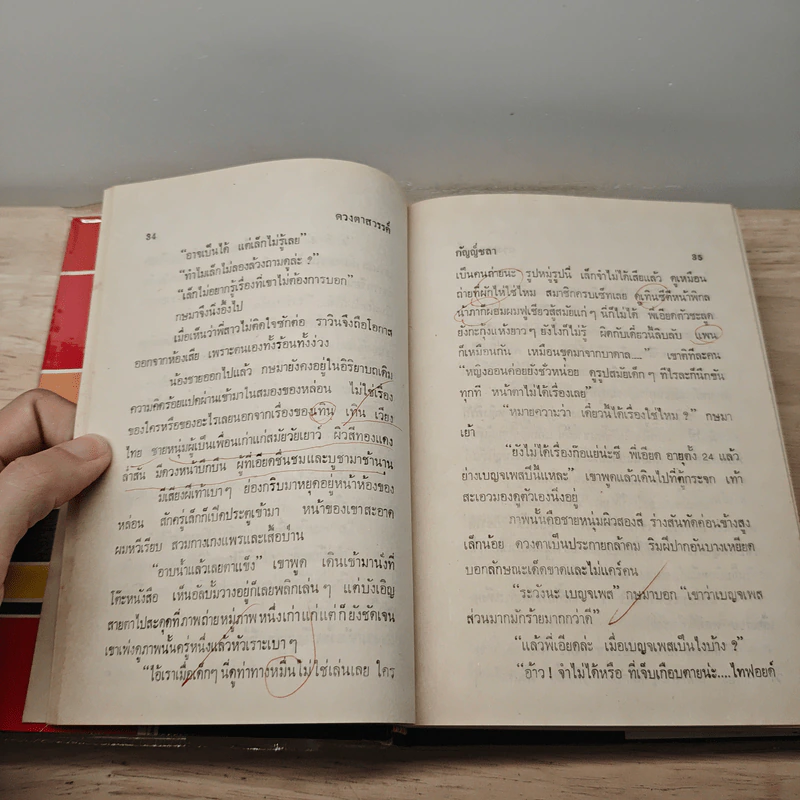 34
ดวงตาสวรรค์
“อาจเป็นได้ แต่เล็กไม่รู้เลย”
“ทำไมเล็กไม่ลองล้วงถามดูล่ะ ?”
“เล็กไม่อยากรู้เรื่องที่เขาไม่ต้องการบอก”
กษมาจึงนิ่งอึ้งไป
เมื่อเห็นว่าพี่สาวไม่คิดใจซักต่อ ราวินจึงถือโอกาส
ออกจากห้องเสีย เพราะตนเองทั้งร้อนทั้งง่วง
น้องชายออกไปแล้ว กษมายังคงอยู่ในอิริยาบถเดิม
ความคิดร้อยแปดผ่านเข้ามาในสมองของหล่อน ไม่ใช่เรื่อง
ของใครหรือของอะไรเลยนอกจากเรื่องของแทน เทิน เวียง
ไทย ชายหนุ่มผู้เป็นเพื่อนเก่าแก่สมัยวัยเยาว์ ผิวสีทองแดง
ล่ำสัน มีดวงหน้าบึกบึน ผู้ที่เอียดชื่นชมและบูชามาช้านาน
มีเสียงฝีเท้าเบาๆ ย่องกริบมาหยุดอยู่หน้าห้องของ
หล่อน สักครู่เล็กก็เปิดประตูเข้ามา หน้าของเขาสะอาด
ผมหวีเรียบ สวมกางเกงแพรและเสื้อป่าน
“อาบน้ำแล้วเลยตาแข็ง” เขาพูด เดินเข้ามานั่งที่
โต๊ะหนังสือ เห็นอัลบั้มวางอยู่ก็เลยพลิกเล่นๆ แต่บังเอิญ
สายตาไปสะดุดที่ภาพถ่ายหมู่ภาพหนึ่งเก่าแก่แต่ก็ยังชัดเจน
เขาเพ่งดูภาพนั้นครู่หนึ่งแล้วหัวเราะเบาๆ
“ไอ้เราเมื่อเด็กๆ นี่ดูท่าทางหมิ่นไม่ใช่เล่นเลย ใคร
กัญญ์ชลา
35
เป็นคนถ่ายนะ รูปหมู่รูปนี้ เล็กจำไม่ได้เสียแล้ว ดูเหมือน
ถ่ายที่ผักไห่ใช่ไหม สมาชิกครบเซ็ทเลย ดูเทินซีดีหน้าพิกล
น้าภาก็ผอมผมฟูเชียวสู้สมัยแก่ๆ นี่ก็ไม่ได้ พี่เอียดตัวชะลูด
ยังกะกุ้งแห้งยาวๆ ยังไงก็ไม่รู้ ผิดกับเดี๋ยวนี้ลิบลับ แพน
ก็เหมือนกัน เหมือนขุดมาจากบาดาล....” เขาติทีละคน
“หญิงออนค่อยยังชั่วหน่อย ดูรูปสมัยเด็กๆ ทีไรละก็นึกขัน
ทุกที หน้าตาไม่ได้เรื่องเลย”
“หมายความว่า เดี๋ยวนี้ได้เรื่องใช่ไหม ?” กษมา
เย้า
“ยังไม่ได้เรื่องก๊อแย่น่ะซี พี่เอียด อายุตั้ง 24 แล้ว
ย่างเบญจเพสปีนี้แหละ” เขาพูดแล้วเดินไปที่ตู้กระจก เท้า
สะเอวมองดูตัวเองนิ่งอยู่
ภาพนั้นคือชายหนุ่มผิวสองสี ร่างสันทัดค่อนข้างสูง
เล็กน้อย ดวงตาเป็นประกายกล้าคม ริมฝีปากอันบางเหยียด
บอกลักษณะเด็ดขาดและไม่แคร์คน
“ระวังนะ เบญจเพส” กษมาบอก “เขาว่าเบญจเพส
ส่วนมากมักร้ายมากกว่าดี”
“แล้วพี่เอียดล่ะ เมื่อเบญจเพสเป็นไงบ้าง ?”
“อ้าว ! จำไม่ได้หรือ ที่เจ็บเกือบตายน่ะ....ไทฟอยด์